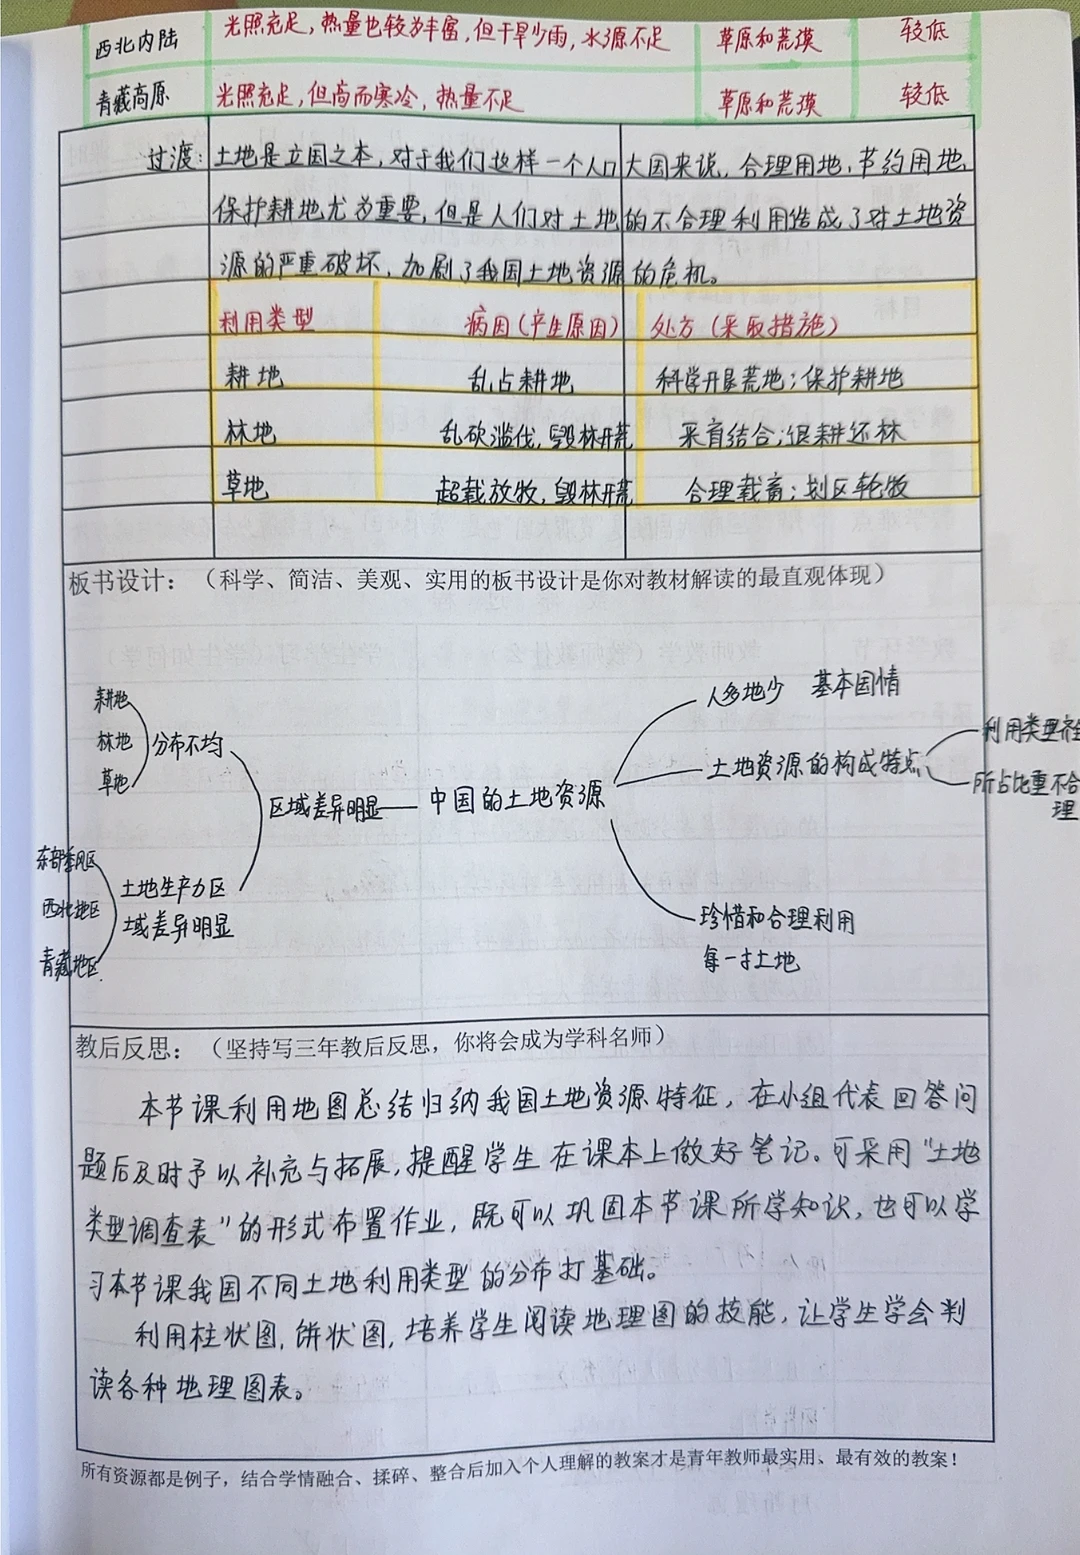 西北内陆 光照充足，热量也较为丰富，但干旱少雨，水源不足 草原和荒漠 较低
青藏高原 光照充足，但高而寒冷，热量不足 草原和荒漠 较低
过渡：土地是立国之本，对于我们这样一个人口大国来说，合理用地，节约用地，
保护耕地尤为重要，但是人们对土地的不合理利用造成了对土地资
源的严重破坏，加剧了我国土地资源的危机。
利用类型 病因（产生原因） 处方（采取措施）
耕地 乱占耕地 科学开垦荒地；保护耕地
林地 乱砍滥伐，毁林开荒 采育结合；退耕还林
草地 超载放牧，毁林开荒 合理载畜；划区轮牧
板书设计：（科学、简洁、美观、实用的板书设计是你对教材解读的最直观体现）
耕地
林地
草地
分布不均
东部季风区
西北地区
青藏地区
土地生产力区
域差异明显
区域差异明显
中国的土地资源
人多地少 基本国情
土地资源的构成特点
利用类型齐全
所占比重不合
理
珍惜和合理利用
每一寸土地
教后反思：（坚持写三年教后反思，你将会成为学科名师）
本节课利用地图总结归纳我国土地资源特征，在小组代表回答问
题后及时予以补充与拓展，提醒学生在课本上做好笔记。可采用“土地
类型调查表”的形式布置作业，既可以巩固本节课所学知识，也可以学
习本节课我国不同土地利用类型的分布打基础。
利用柱状图，饼状图，培养学生阅读地理图的技能，让学生学会判
读各种地理图表。
所有资源都是例子，结合学情融合、揉碎、整合后加入个人理解的教案才是青年教师最实用、最有效的教案！